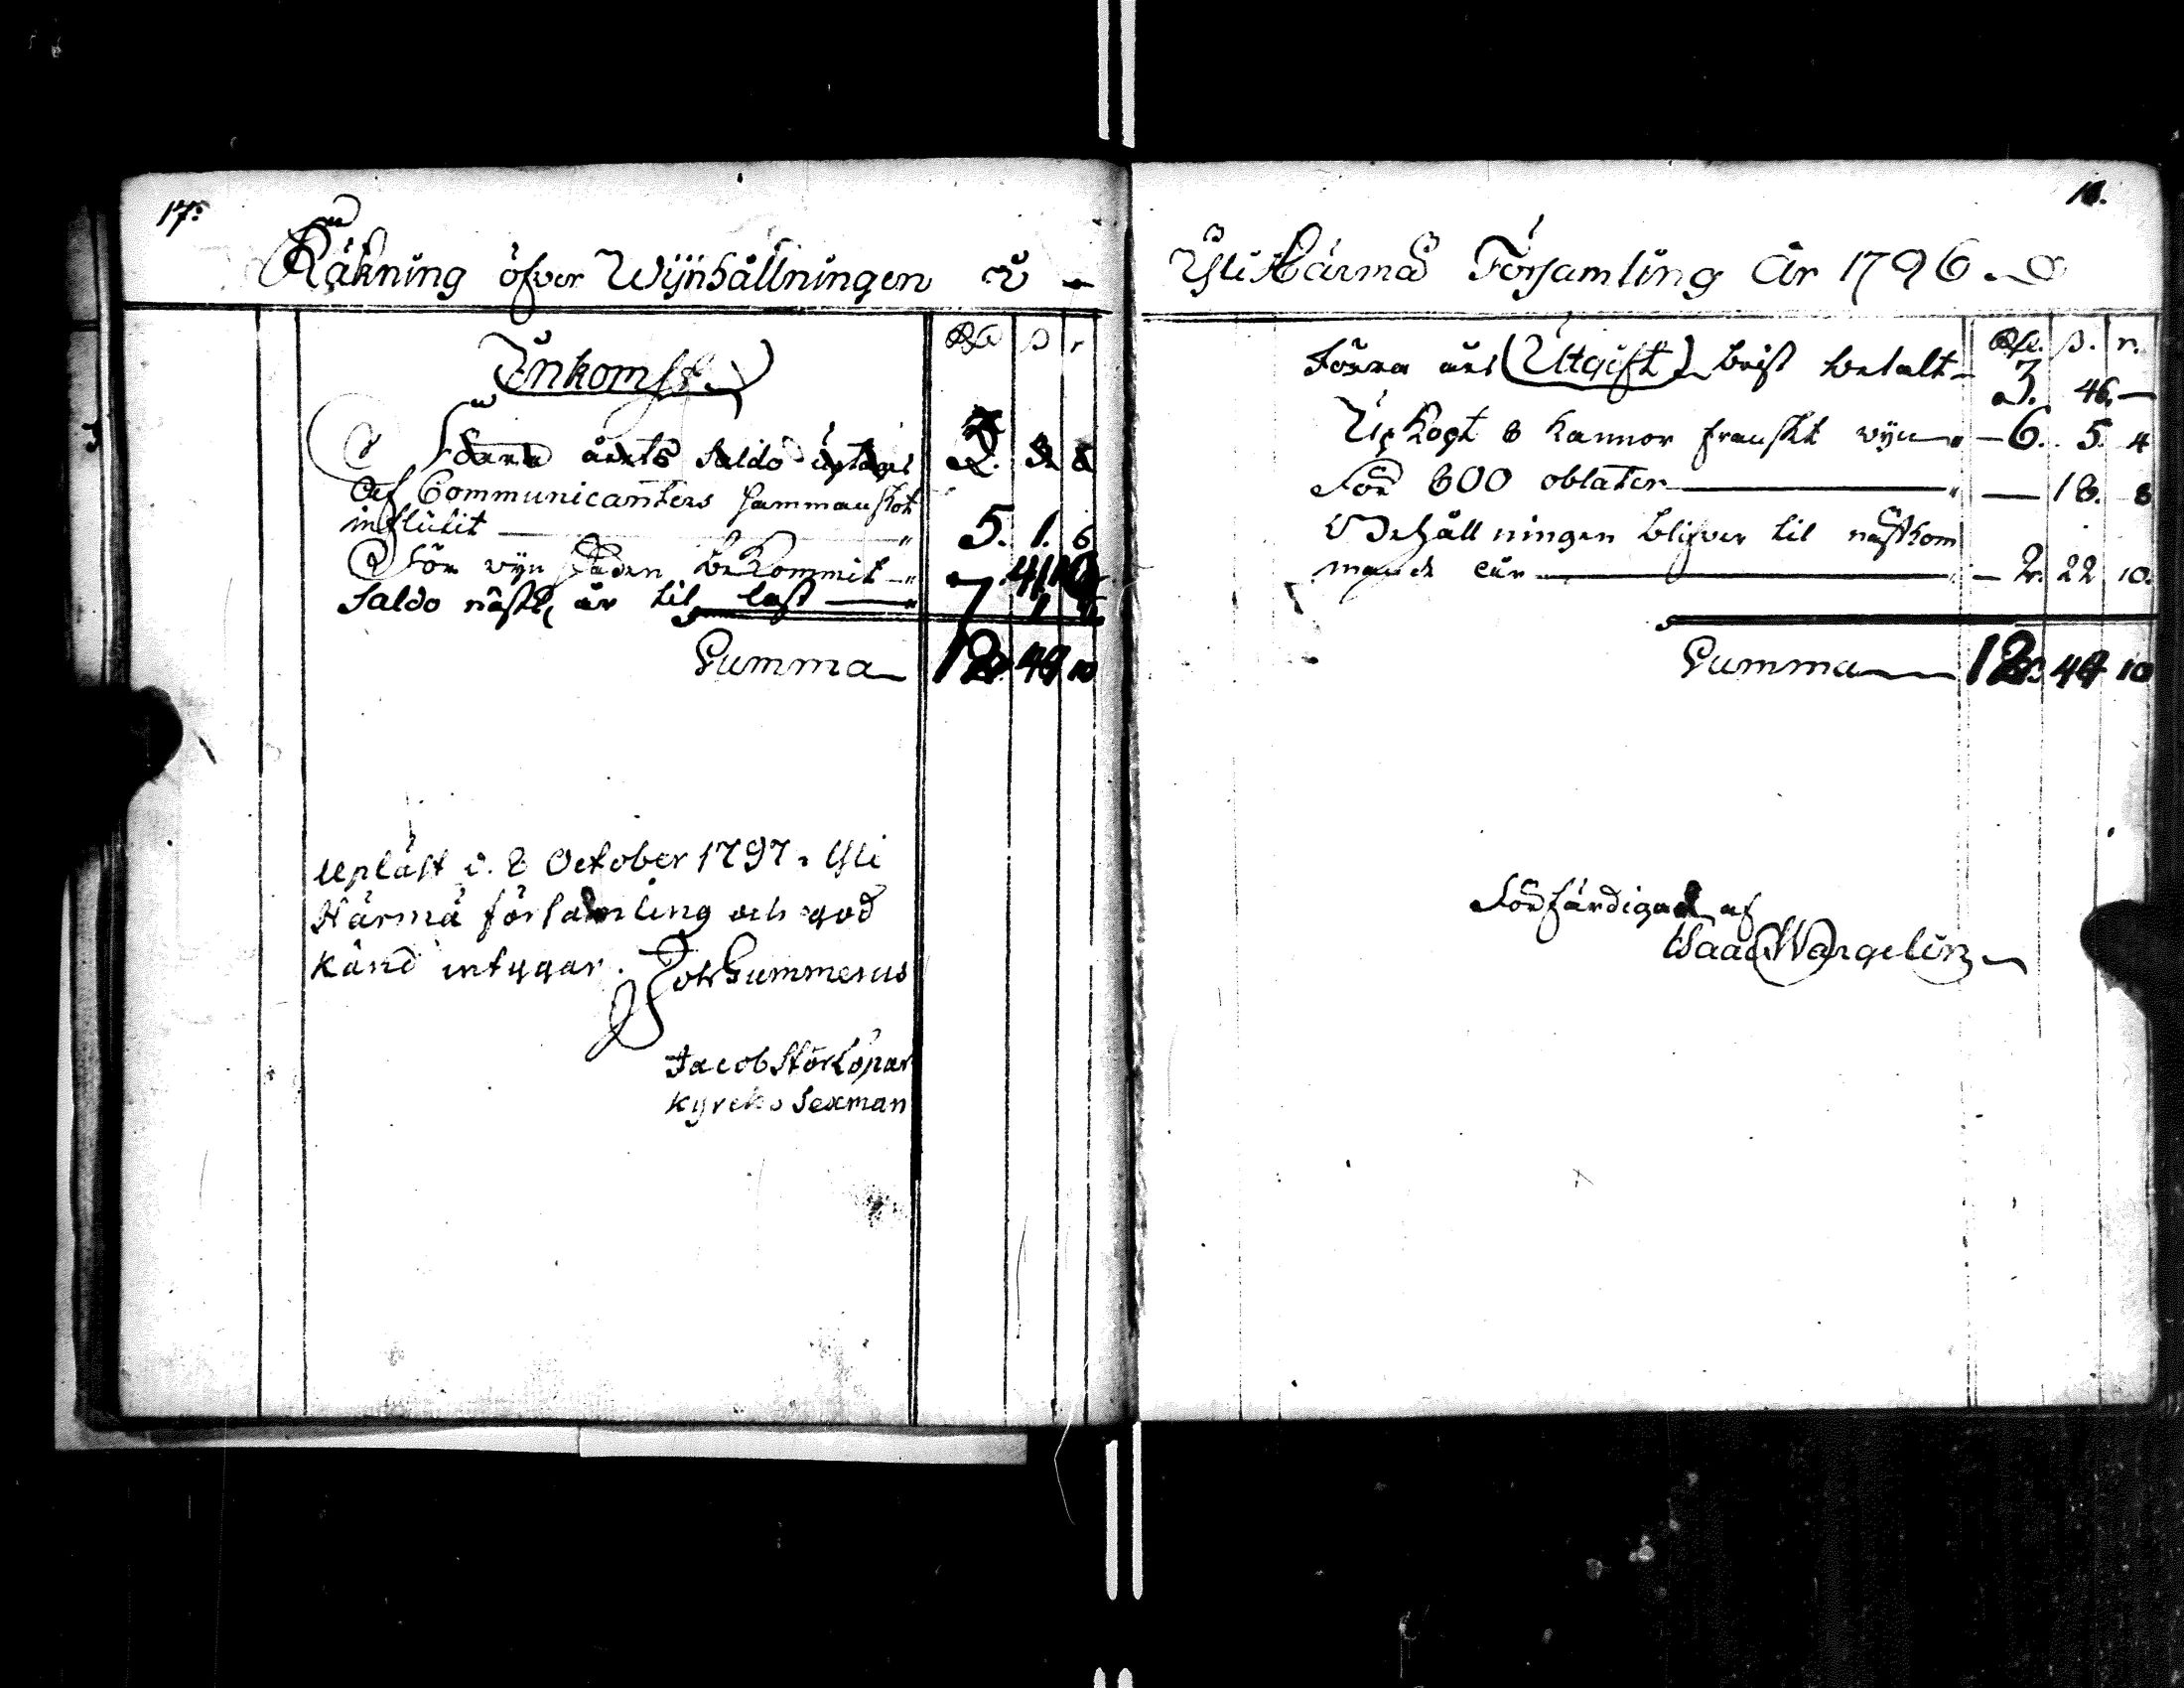 17.
Räkning öfver Wijnhållningen i
Inkomst.
Rd ß r
Förra årets Saldo uptages 2. 3. 8
Af Communicanters sammanskot
influtit " 5. 1. 6
För wijn säden bekommit " 41. 10
Saldo nästk. år til last " 7 1
Summa 12. 44 10
Upläst d. 8 October 1797. Yli
Härmä församling och god
känd intygar. Joh Gummerus
Jacob Storlöpar
Kyrcko Sexman
18.
Yli Härmä Församling År 1796
Rd. ß. r.
Förra års Utgift brist betalt 3. 46. —
Upkögt 8 kannor franskt wijn " — 6. 5. 4
För 800 oblater " — 18. 8
Behållningen blifver til nästkom
mande år " — 2. 22 10.
Summa 12. 44 10
Förfärdigad af
Isaac Wargelin